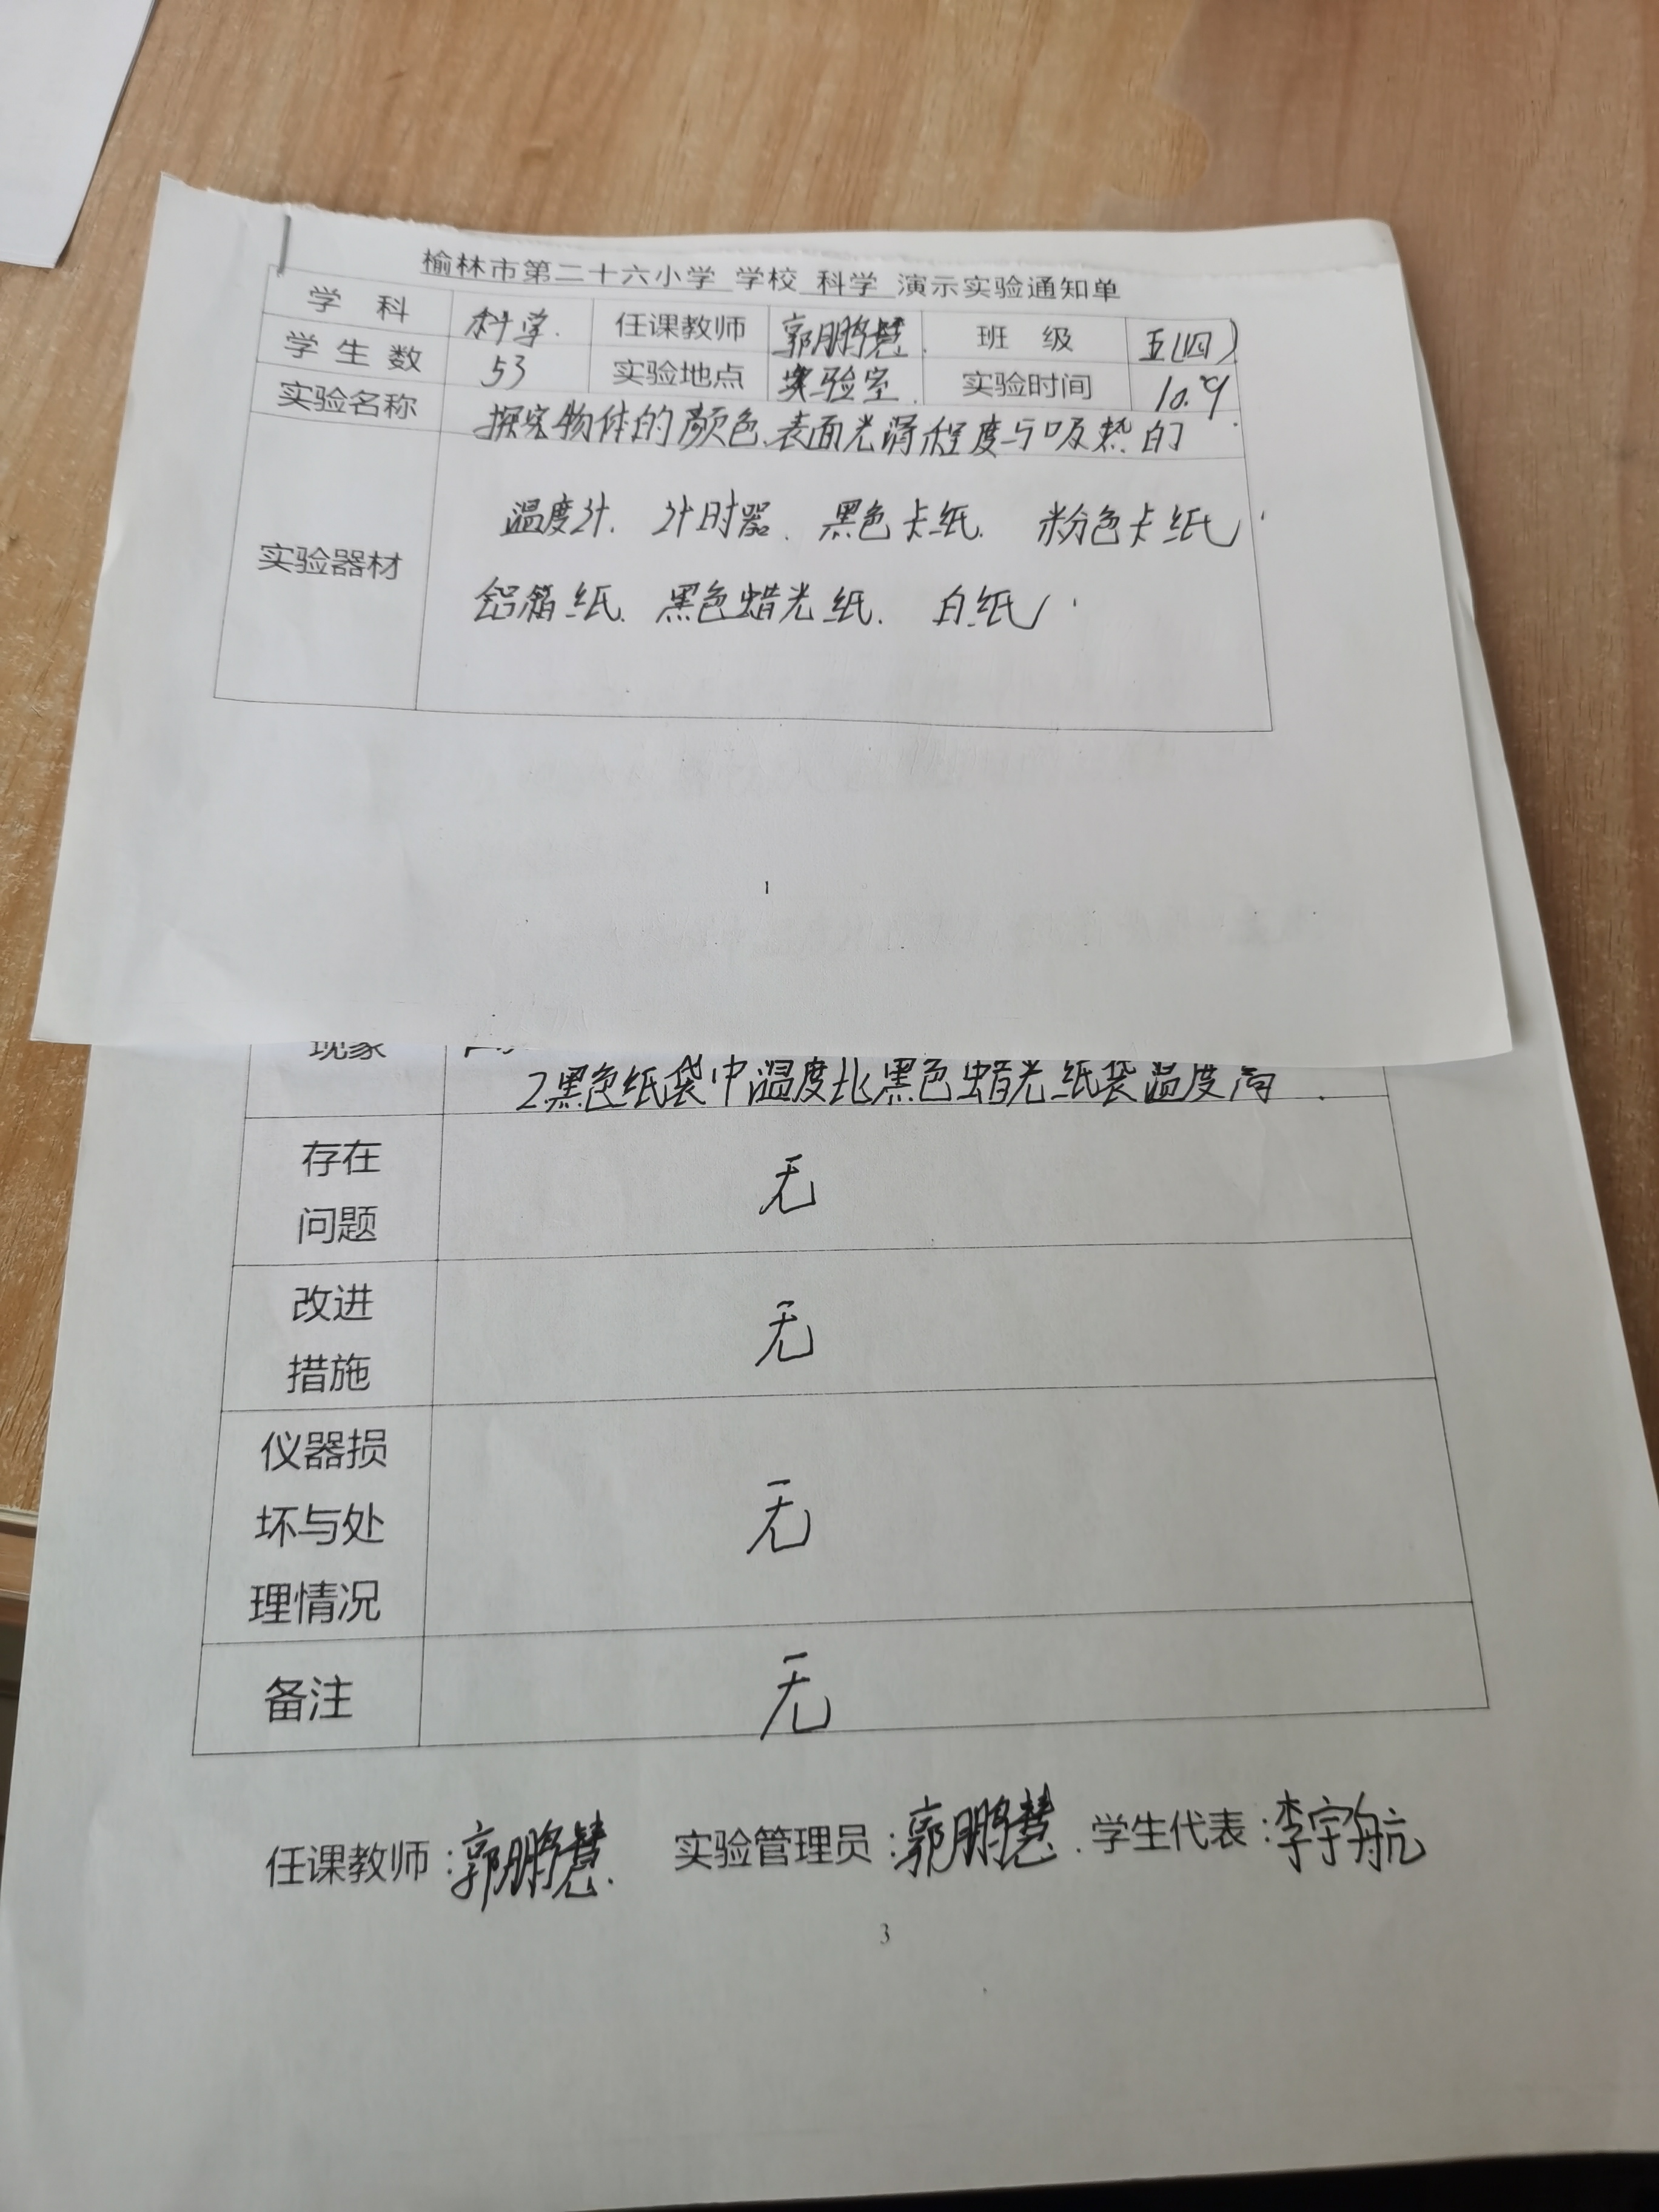 榆林市第二十六小学 学校 科学 演示实验通知单
学 科 科学. 任课教师 郭鹏慧. 班 级 五(四)
学 生 数 53 实验地点 实验室. 实验时间 10.9.
实验名称 探究物体的颜色、表面光滑程度与吸热的
实验器材 温度计. 计时器、黑色卡纸. 粉色卡纸
铝箔纸. 黑色蜡光纸. 白纸
1
现象
2.黑色纸袋中温度比黑色蜡光纸袋温度高.
存在
问题 无
改进
措施 无
仪器损
坏与处 无
理情况
备注 无
任课教师:郭鹏慧. 实验管理员:郭鹏慧. 学生代表:李宇航
3